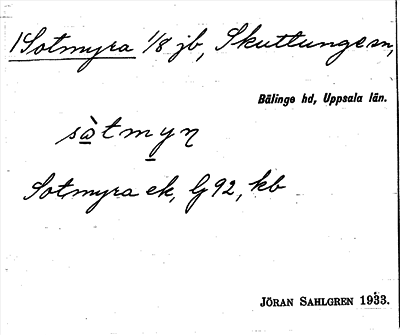 1 Sotmyra 1/8 jb, Skuttunge sn,
Bälinge hd, Uppsala län.
sàtmyɳ
Sotmyra ek, G92, kb
JÖRAN SAHLGREN 1933.